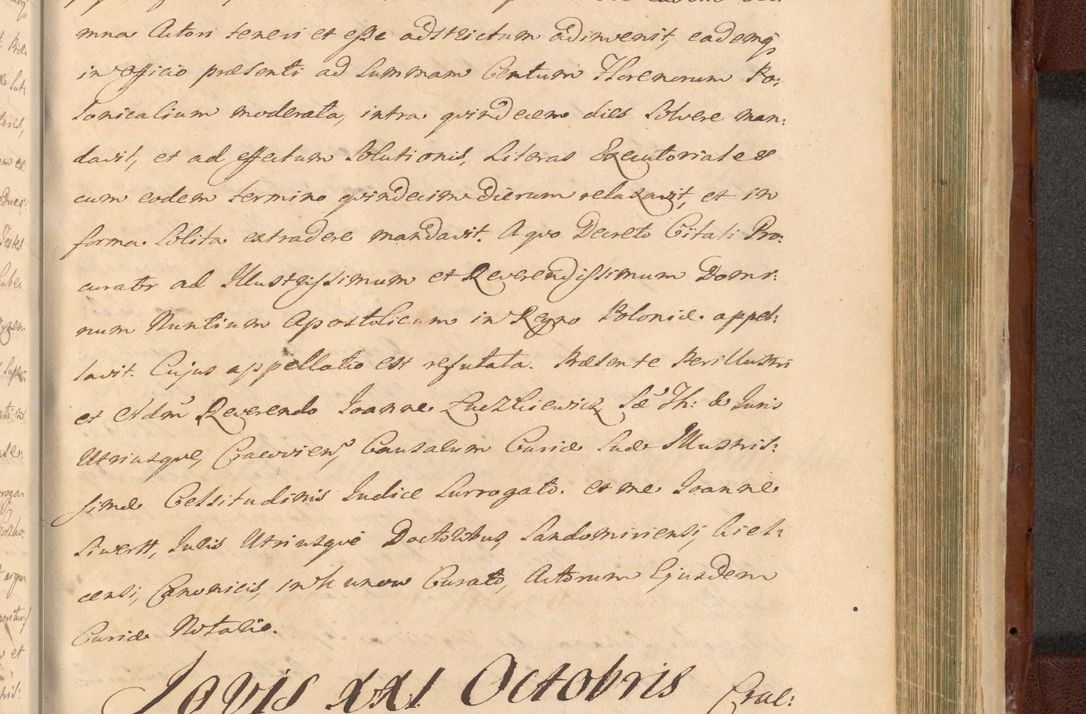 mna Actori teneri et esse adstrictum adinvenit, eademq,
in Officio præsenti ad Summam Centum Florenorum Po,
lonicalium moderata, intra quindecem dies Solvere man:
davit, et ad effectum Solutionis, Literas Executoriales
cum eodem termino quindecim Dierum relaxavit, et in
forma Solita extradere mandavit. A quo Decreto Citati Pro:
curator ad Illustrissimum et Reverendissimum Domi:
num Nuntium Apostolicum in Regno Poloniæ appel:
lavit. Cujus appellatio est refutata. Præsente Perillustri
et Adm Reverendo Joanne Luczkiewicz Sæ Th: & Juris
Utriusque, Cracovien, Causarum Curiæ Suæ Illustris:
simæ Celsitudinis Judice Surrogato. et me Joanne
Siwertt, Juris Utriusque Doctoribus, Sandomiriensi, Kiel:
censi, Canonicis, in Curato, Actorum Ejusdem
Curiæ Notario.
Jovis XXI Octobris